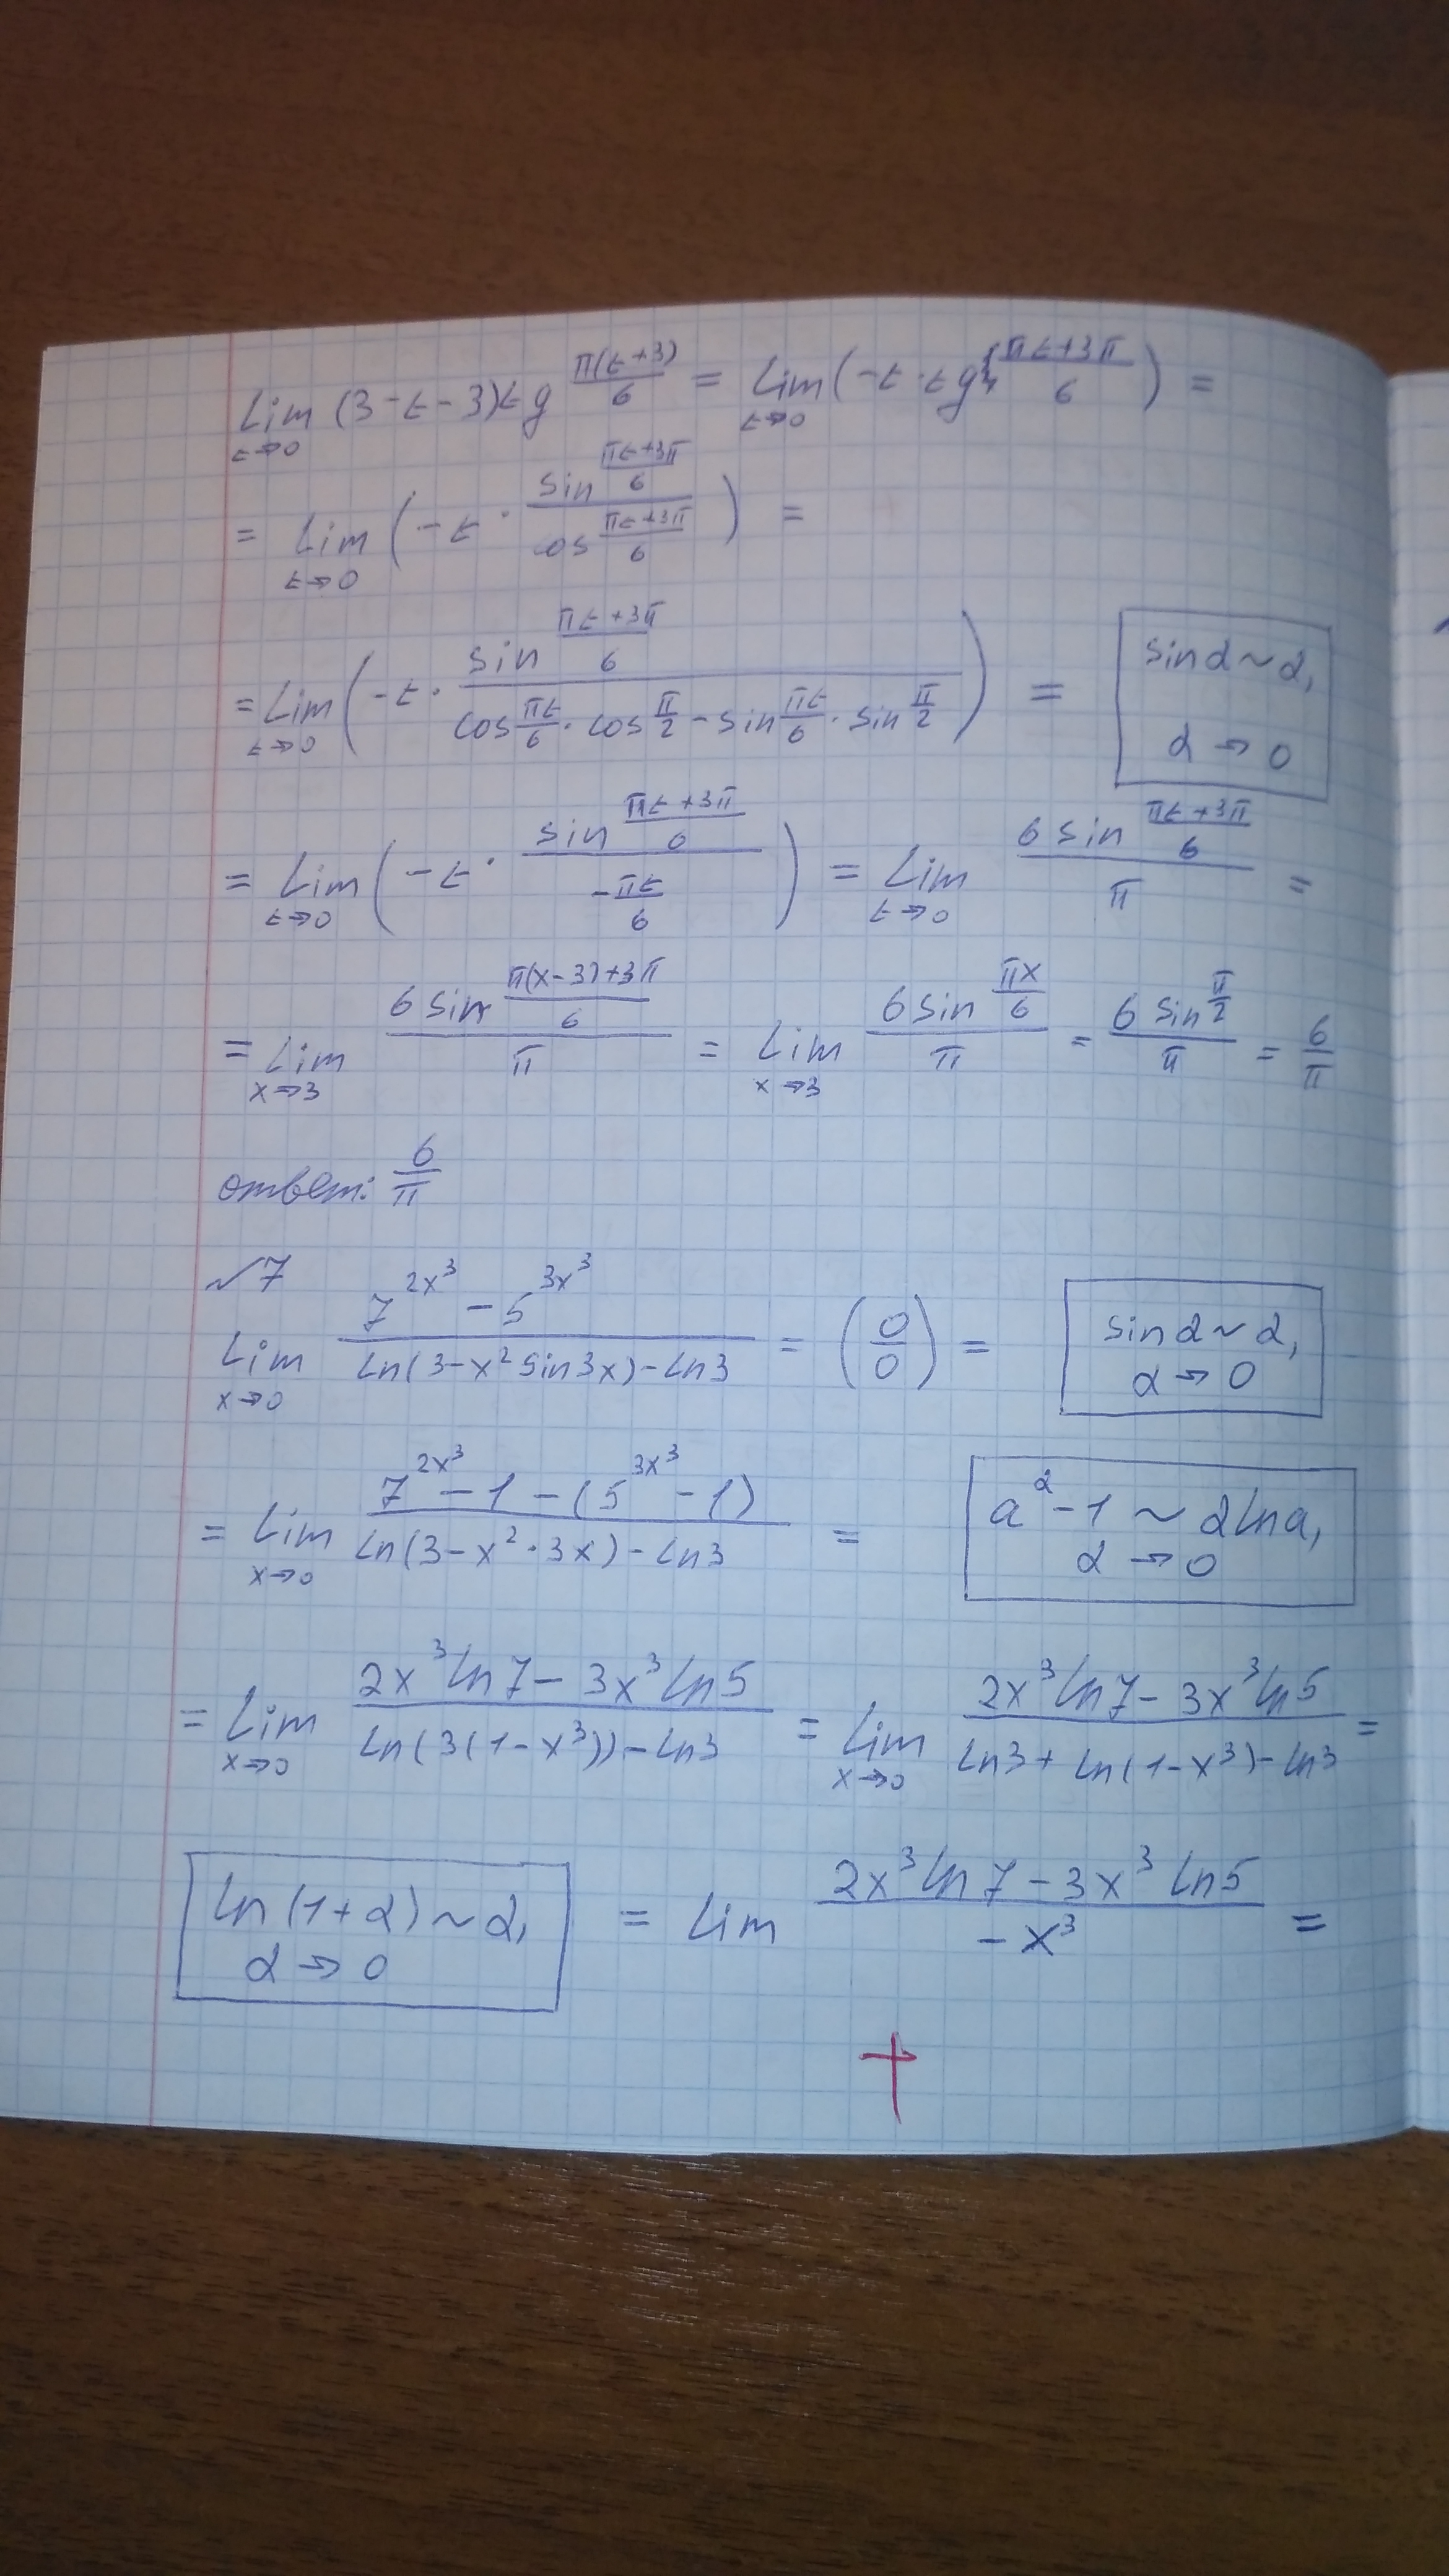 lim t→0 (3-t-3)tg π(t+3)/6 = lim t→0 (-t · tg (πt+3π)/6) =
= lim t→0 (-t · sin (πt+3π)/6 / cos (πt+3π)/6) =
= lim t→0 (-t · sin (πt+3π)/6 / (cos πt/6 · cos π/2 - sin πt/6 · sin π/2)) =
sin α ~ α,
α → 0
= lim t→0 (-t · sin (πt+3π)/6 / (-πt/6)) = lim t→0 6 sin (πt+3π)/6 / π =
= lim x→3 6 sin (π(x-3)+3π)/6 / π = lim x→3 6 sin πx/6 / π = 6 sin π/2 / π = 6/π
ответ: 6/π
√7
lim x→0 (7^(2x³) - 5^(3x³)) / (ln(3-x² sin3x) - ln3) = (0/0) =
sin α ~ α,
α → 0
= lim x→0 (7^(2x³) - 1 - (5^(3x³) - 1)) / (ln(3-x²·3x) - ln3) =
a^α - 1 ~ α ln a,
α → 0
= lim x→0 (2x³ ln7 - 3x³ ln5) / (ln(3(1-x³)) - ln3) = lim x→0 (2x³ ln7 - 3x³ ln5) / (ln3 + ln(1-x³) - ln3) =
ln(1+α) ~ α,
α → 0
= lim (2x³ ln7 - 3x³ ln5) / (-x³) =
+